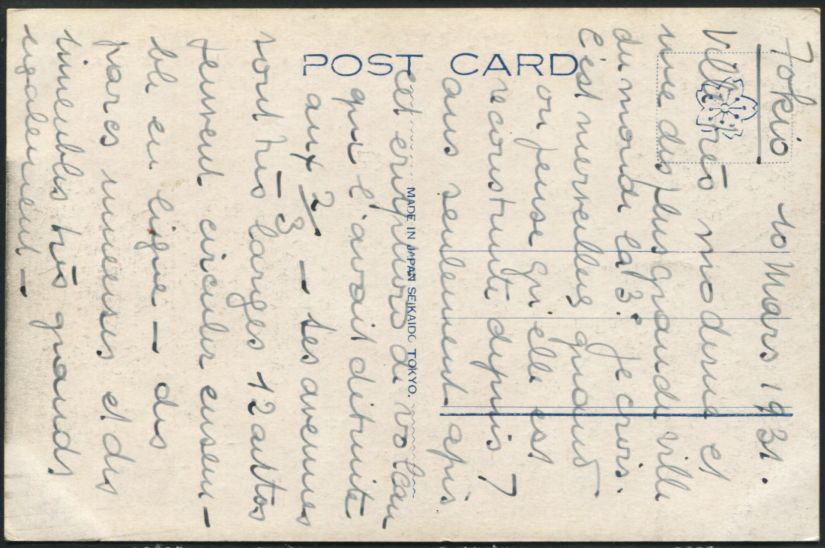 POST CARD
MADE IN JAPAN SEIKAIDO, TOKYO.
Tokio 10 Mars 1931.
Ville très moderne et
une des plus grande ville
du monde la 3e je crois.
C'est merveilleux quand
on pense qu'elle est
reconstruite depuis 7
ans seulement apis
cet eruptions de volcan
qui l'avait ditruite
aux 2/3 — Les avenues
sont très larges 12 autos
peuvent circuler ensem-
ble en ligne — des
parcs immenses et des
immeubles très grands
egalement —